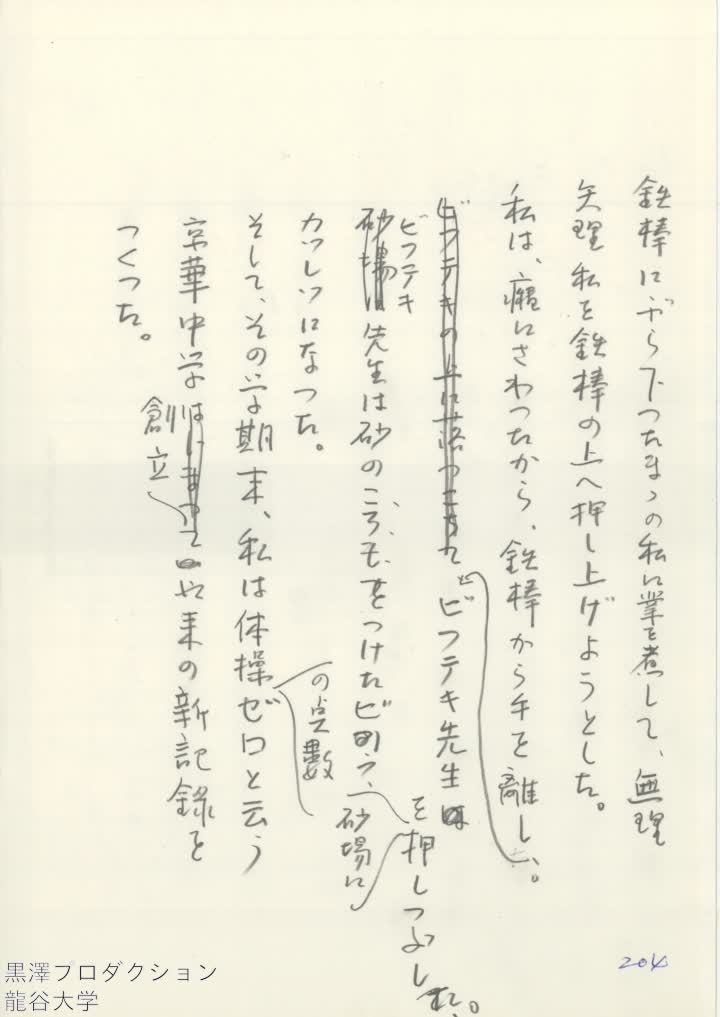 鉄棒にぶら下つたまゝの私に業を煮して、無理
矢理私を鉄棒の上へ押し上げようとした。
私は、癪にさわつたから、鉄棒から手を離し、
ビフテキの上に落つこちて
ビフテキ先生を押しつぶした。
ビフテキ
砂場は先生は砂のころもをつけたビフ
砂場に
カツレツになつた。
そして、その学期末、私は体操ゼロと云う
の点数
京華中学はじまつて以来の新記録を
創立
つくつた。
204
黒澤プロダクション
龍谷大学